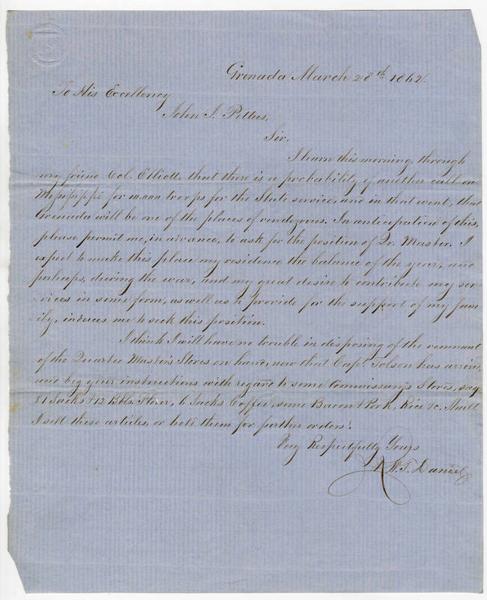 Grenada March 28th 1862
To His Excellency
John J. Pettus,
Sir.
I learn this morning, through
my friend Col. Elliott, that there is a probability of another call on
Mississippi for 10,000 troops for the State service, and in that event, that
Grenada will be one of the places of rendezvous. In anticipation of this,
please permit me, in advance, to ask for the position of Qr. Master. I
expect to make this place my residence the balance of the year, and
perhaps, during the war, and my great desire to contribute my ser-
vices in some form, as well as to provide for the support of my fam-
ily, induces me to seek this position.
I think I will have no trouble in disposing of the remnant
of the Quarter Master's Stores on hand, now that Capt. Tolson has arrived,
and beg your instructions with regard to some Commissary's Stores, say
81 Sacks & 12 Bbls Flour, 6 Sacks Coffee, some Bacon & Pork, Rice &c. Shall
I sell these articles, or hold them for further orders?
Very Respectfully Yours
W. T. Daniel